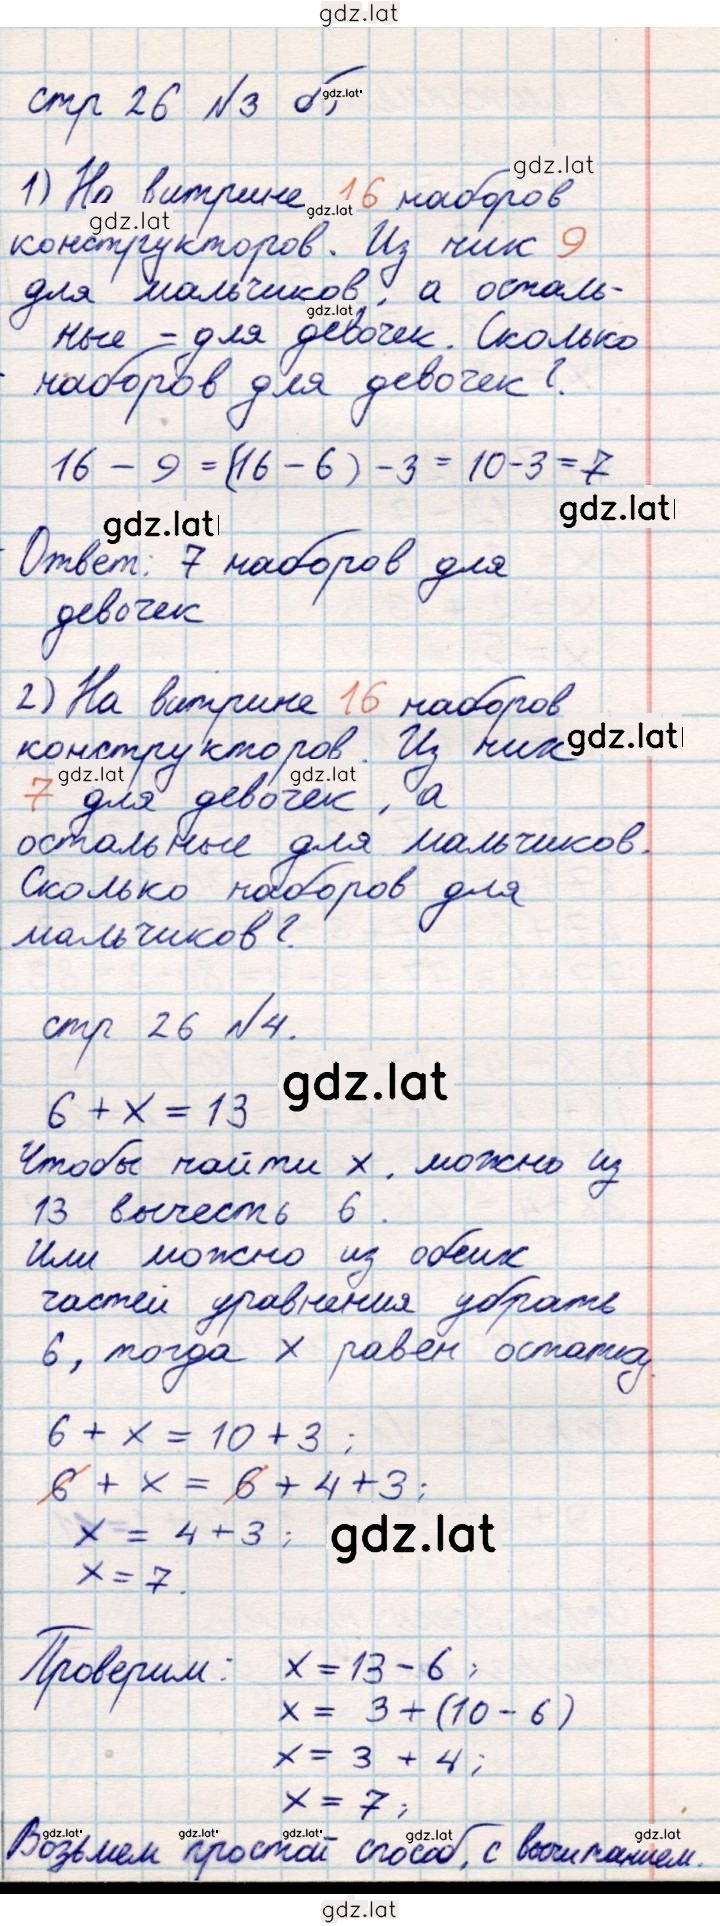 gdz.lat
стр 26 №3 б,
gdz.lat
gdz.lat
1) На витрине 16 наборов
gdz.lat
gdz.lat
конструкторов. Из них 9
для мальчиков, а осталь-
gdz.lat
ные – для девочек. Сколько
наборов для девочек?
16 - 9 = (16 - 6) - 3 = 10 - 3 = 7
gdz.lat
gdz.lat
Ответ: 7 наборов для
девочек
2) На витрине 16 наборов
конструкторов. Из них
gdz.lat
gdz.lat
gdz.lat
7 для девочек, а
остальные для мальчиков.
Сколько наборов для
мальчиков?
стр 26 №4.
gdz.lat
6 + x = 13
Чтобы найти x, можно из
13 вычесть 6.
Или можно из обеих
частей уравнения убрать
6, тогда x равен остатку.
6 + x = 10 + 3;
6 + x = 6 + 4 + 3;
x = 4 + 3;
gdz.lat
x = 7.
Проверим: x = 13 - 6;
x = 3 + (10 - 6)
x = 3 + 4;
x = 7;
gdz.lat
gdz.lat
gdz.lat
gdz.lat
gdz.lat
Возьмем простой способ, с вычитанием.
gdz.lat